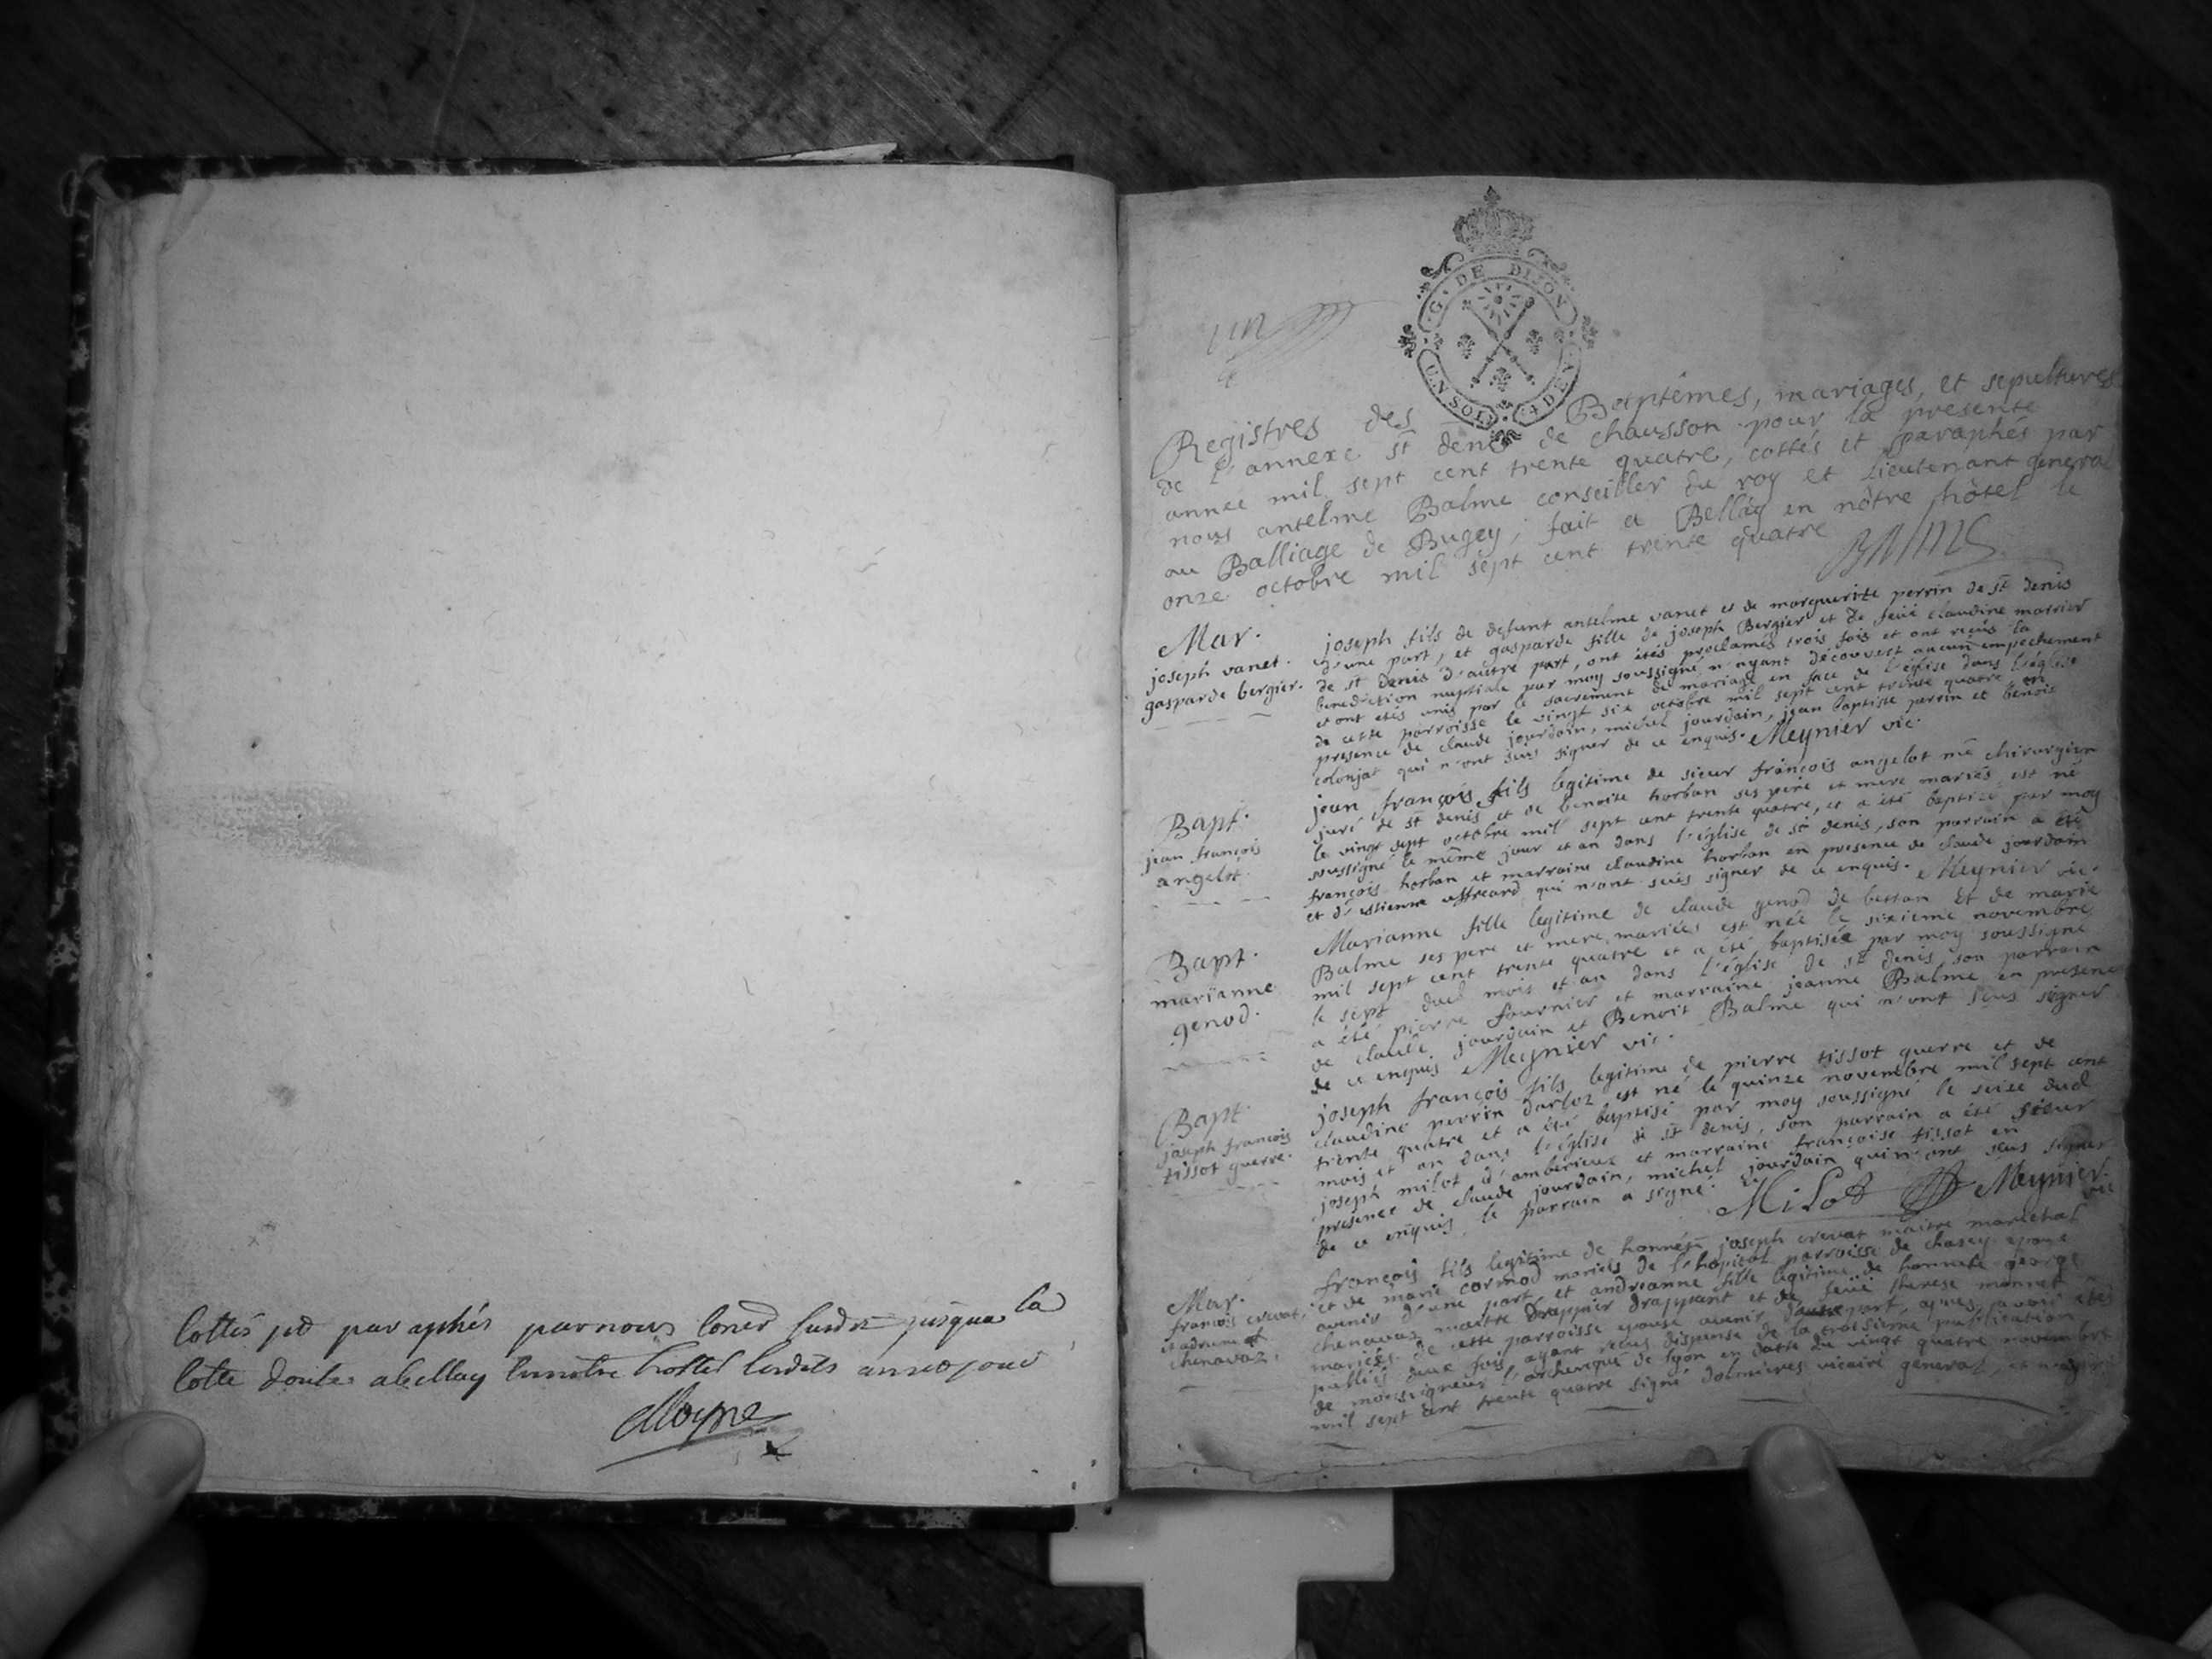 Cottés et paraphés par nous
cotte a bellay
un
G. DE DIJON
UN SOL 4 DEN
Registres des Baptêmes, mariages, et sepultures
de l'annexe st denis de chausson pour la presente
annee mil sept cent trente quatre, cottés et paraphés par
nous antelme Balme conseiller du roy et Lieutenant general
au Balliage de Bugey, fait a Bellay en nôtre hôtel le
onze octobre mil sept cent trente quatre
Mar.
joseph vanet.
gasparde bergier.
joseph fils de defunt antelme vanet et de marguerite perrin de st denis
d'une part, et gasparde fille de joseph Bergier et de feüe claudine marrier
de st denis d'autre part, ont étés proclamés trois fois et ont reçus la
benediction nuptiale par moy soussigné n'ayant découvert aucun empechement
et ont etés unis par le sacrement de mariage en face de l'église dans l'église
de cette parroisse le vingt six octobre mil sept cent trente quatre en
presence de claude jourdain, michel jourdain, jean baptiste perrin et benoit
colonjat qui n'ont sçus signer de ce enquis. Meynier vic.
Bapt.
jean françois
angelot.
jean françois fils legitime de sieur françois angelot me chirurgien
juré de st denis et de benoite horban ses pere et mere mariés est né
le vingt sept octobre mil sept cent trente quatre, et a été baptizé par moy
soussigné le même jour et an dans l'église de st denis, son parrain a été
françois horban et marraine claudine horban en presence de claude jourdain
et d'estienne qui n'ont sçus signer de ce enquis. Meynier vic.
Bapt.
marianne
genod.
Marianne fille legitime de claude genod de bettan et de marie
Balme ses pere et mere mariées est née le sixieme novembre
mil sept cent trente quatre et a été baptisée par moy soussigné
le sept dud mois et an dans l'église de st denis, son parrain
a été pierre fournier et marraine jeanne Balme en presence
de claude jourdain et Benoit Balme qui n'ont sçus signer
de ce enquis Meynier vic.
Bapt.
joseph françois
tissot guerre.
joseph françois fils legitime de pierre tissot guerre et de
claudine perrin darloz est né le quinze novembre mil sept cent
trente quatre et a été baptisé par moy soussigné le seize dud
mois et an dans l'église de st denis, son parrain a été sieur
joseph milot d'amberieux et marraine françoise tissot en
presence de claude jourdain, michel jourdain qui n'ont sçus signer
de ce enquis, le parrain a signé.
Milot Meynier vic
Mar.
françois crevat,
chenavaz.
françois fils legitime de joseph crevat maitre marechal
et de marie cormod mariés de l'hopital parroisse de chasey epoux
avenir d'une part et andreanne fille legitime de honnete george
chenavaz maitre drappier drappant et de feüe therese monnet
mariés de cette parroisse epouse avenir d'autre part, apres avoir etés
publiés deux fois, ayant reçus dispense de la troisieme publication
de monseigneur l'archeveque de lyon en datte du vingt quatre novembre
mil sept cent trente quatre signé vicaire general,